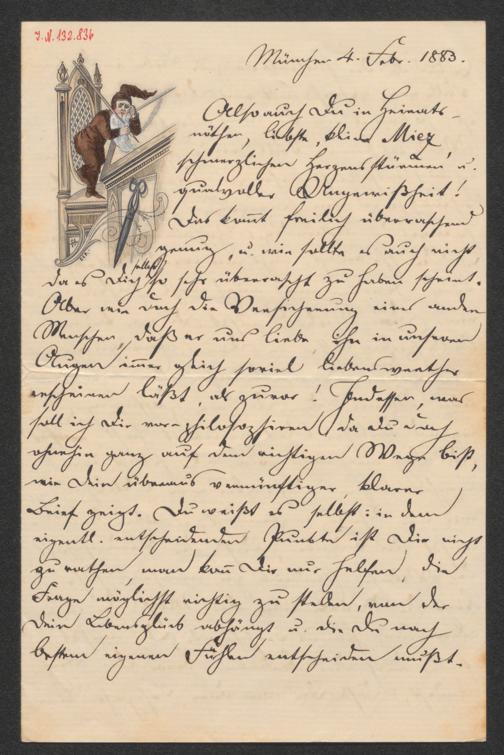 J.N. 132.836
München 4. Febr. 1883.
Also auch Du in Heirats-
nöthen, liebste, kleine Miez
schmerzlichen Herzensstürmen u.
qualvoller Ungewißheit!
Das kommt freilich überraschend
genug, u. wie sollte es auch nicht,
da es Dich selbst so sehr überrascht zu haben scheint.
Aber wie doch die Versicherung eines andern
Menschen, daß er uns liebe ihn in unseren
Augen immer gleich soviel liebenswerther
erscheinen läßt, als zuvor! Indessen, was
soll ich Dir vor-philosophiren, da Du doch
ohnehin ganz auf dem richtigen Wege bist,
wie Dein überaus vernünftiger, klarer
Brief zeigt. Du weißt es selbst: in dem
eigentl. entscheidenden Punkte ist Dir nicht
zu rathen, man kann Dir nur helfen, die
Frage möglichst richtig zu stellen, von der
Dein Lebensglück abhängt u. die Du nach
bestem eigenen Fühlen entscheiden mußt.